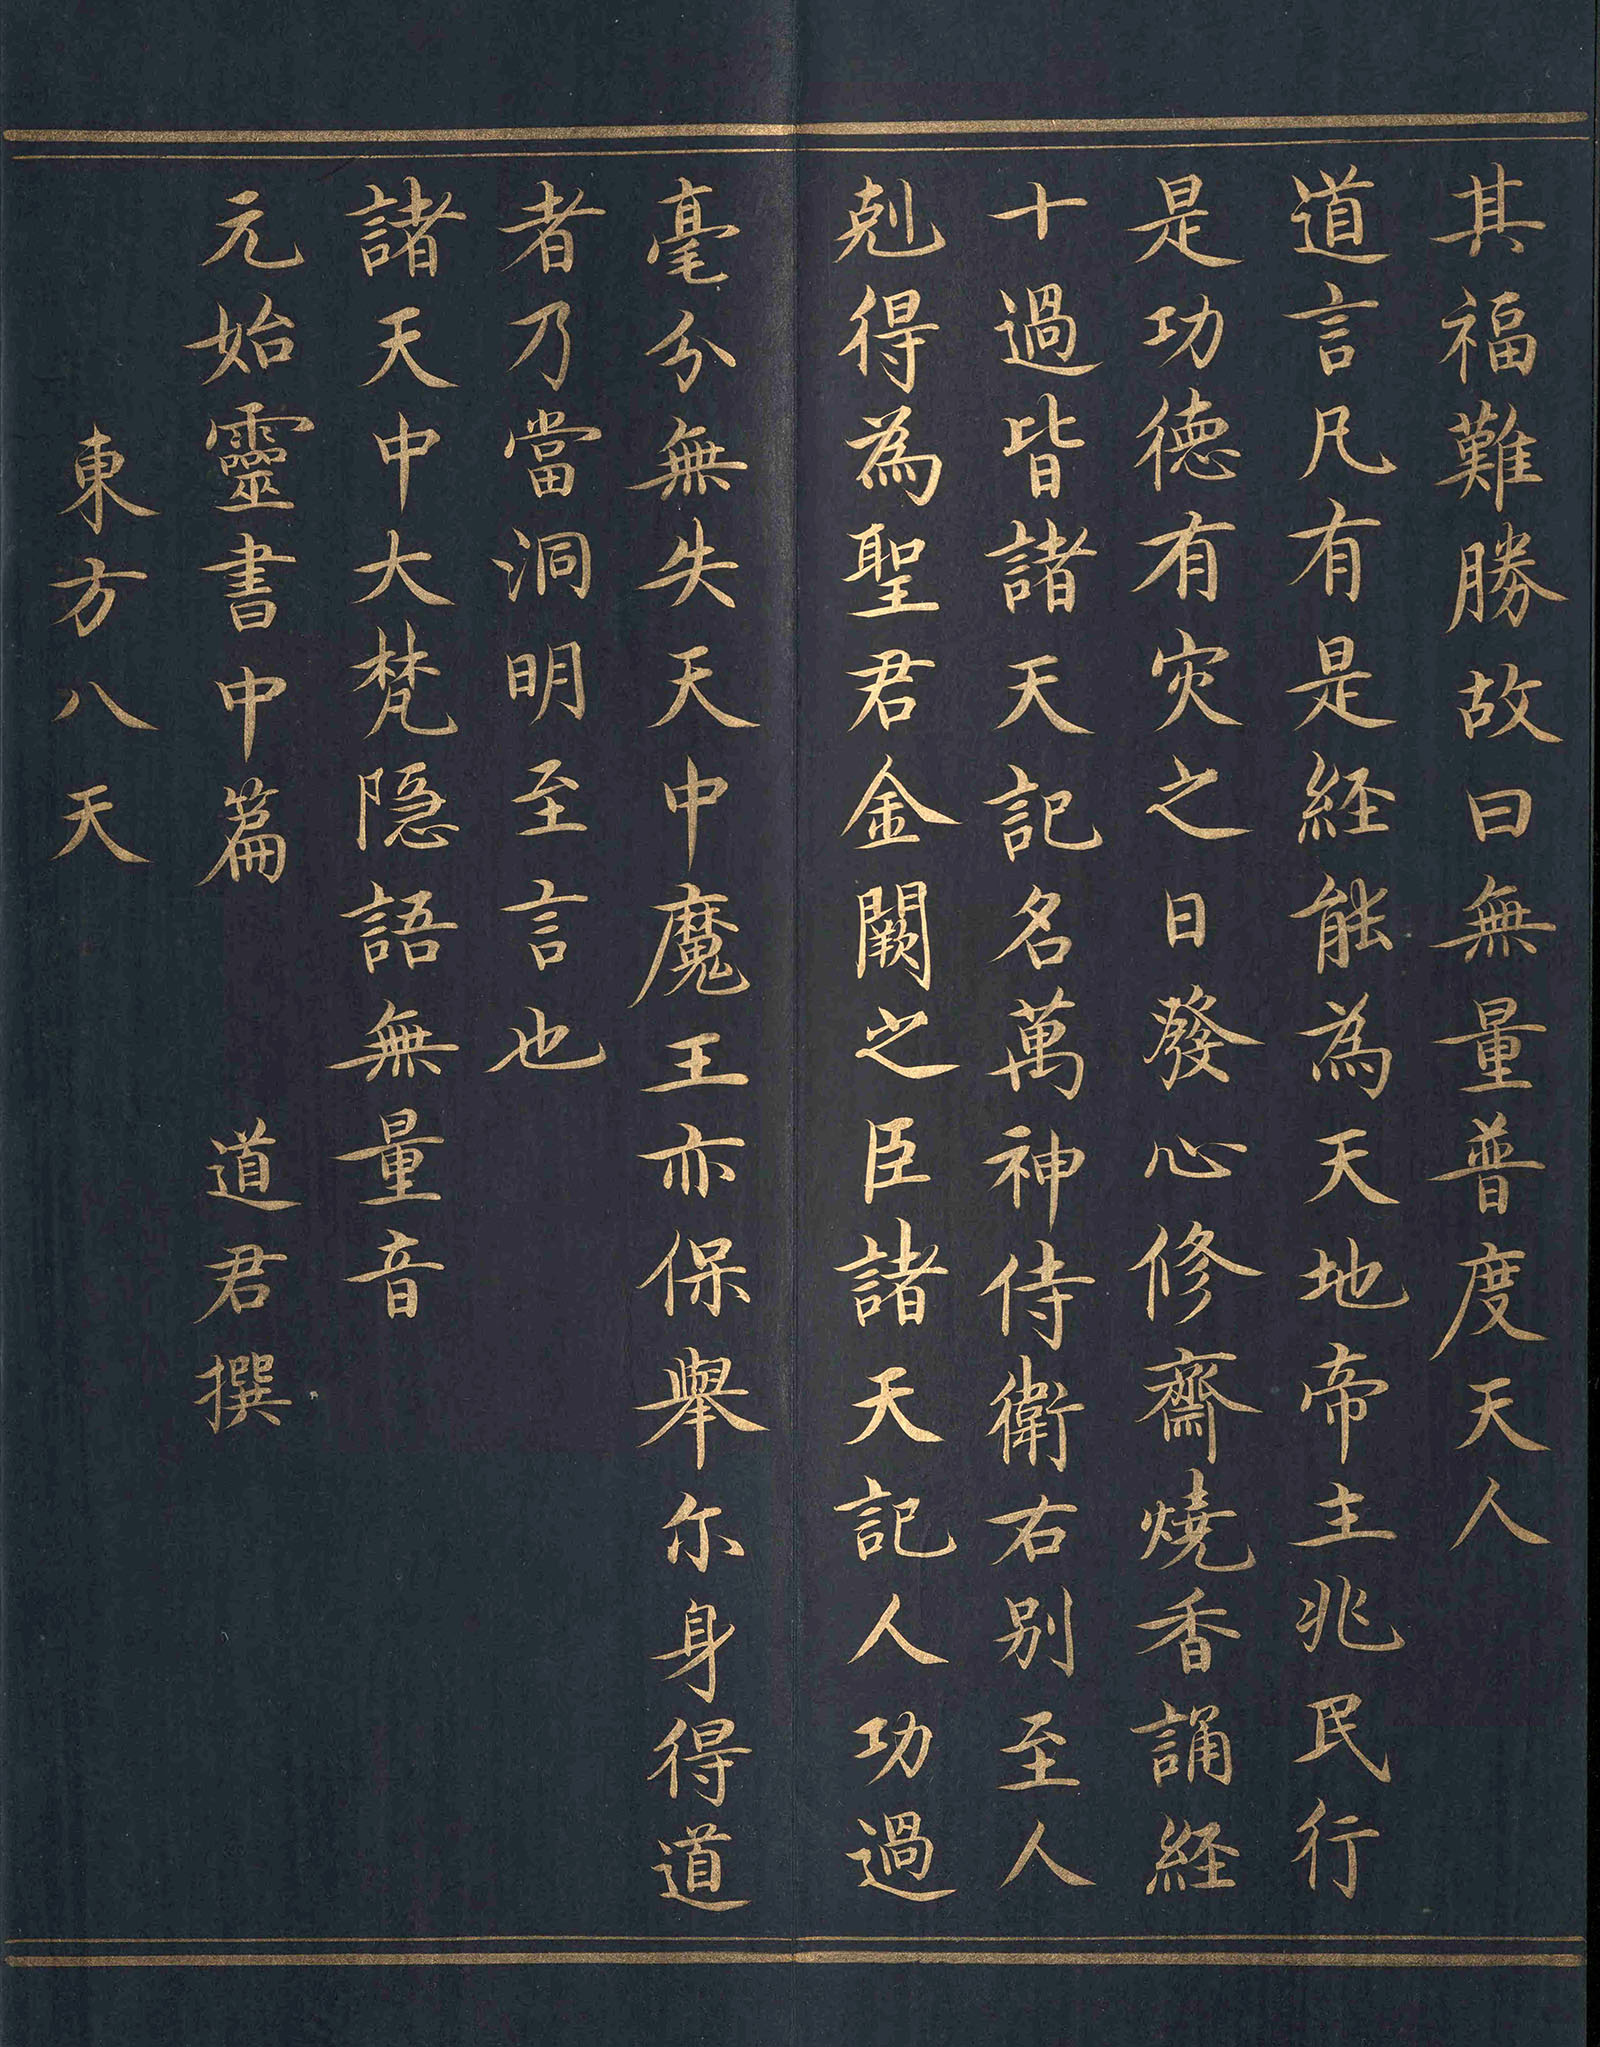 其福難勝故曰無量普度天人
道言凡有是経能為天地帝主兆民行
是功德有灾之日發心修齋燒香誦経
十過皆諸天記名萬神侍衛右别至人
剋得為聖君金闕之臣諸天記人功過
毫分無失天中魔王亦保舉尔身得道
者乃當洞明至言也
諸天中大梵隠語無量音
元始靈書中篇 道君撰
東方八天